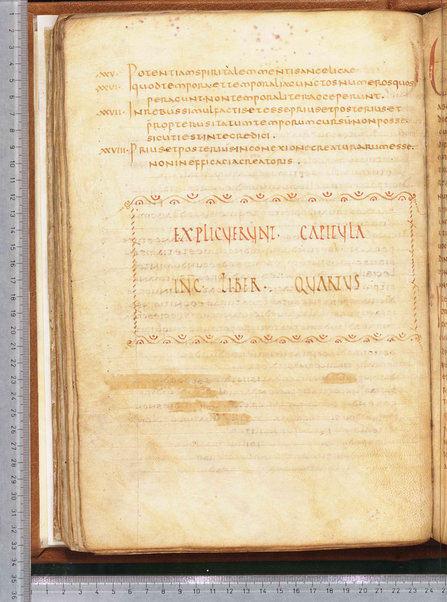 XXV· POTENTIAM SPIRITALEM MENTIS ANGELICAE
XXVI· QUOD TEMPORA ET TEMPORALIA CUNCTOS NUMEROS QUOS
PERAGUNT· NON TEMPORALITER ACCEPERUNT·
XXVII· IN REBUS SIMUL FACTIS ET ESSE PRIUS ET POSTERIUS ET
PROPTER USITATUM TEMPORUM CURSŪ NON POSSE
SICUTI EST INTE DICI·
XXVIII· PRIUS ET POSTERIUS IN CONEXIONE CREATURARUM ESSE·
NON IN EFFICACIA CREATORIS·
EXPLICUERUNT· CAPITULA
INC· LIBER· QUARTUS